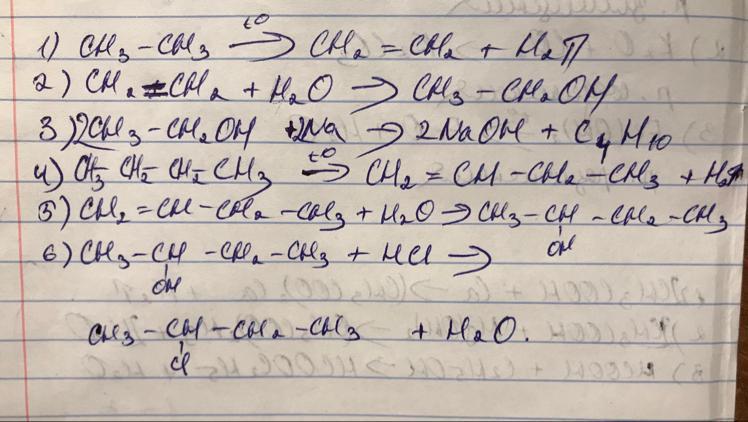 1) CH3-CH3 t0→ CH2=CH2 + H2↑
2) CH2=CH2 + H2O → CH3-CH2OH
3) 2CH3-CH2OH +2Na → 2NaOH + C4H10
4) CH3-CH2-CH2-CH3 t0→ CH2=CH-CH2-CH3 + H2↑
5) CH2=CH-CH2-CH3 + H2O → CH3-CH-CH2-CH3
OH
6) CH3-CH-CH2-CH3 + HCl →
OH
CH3-CH-CH2-CH3 + H2O.
Cl